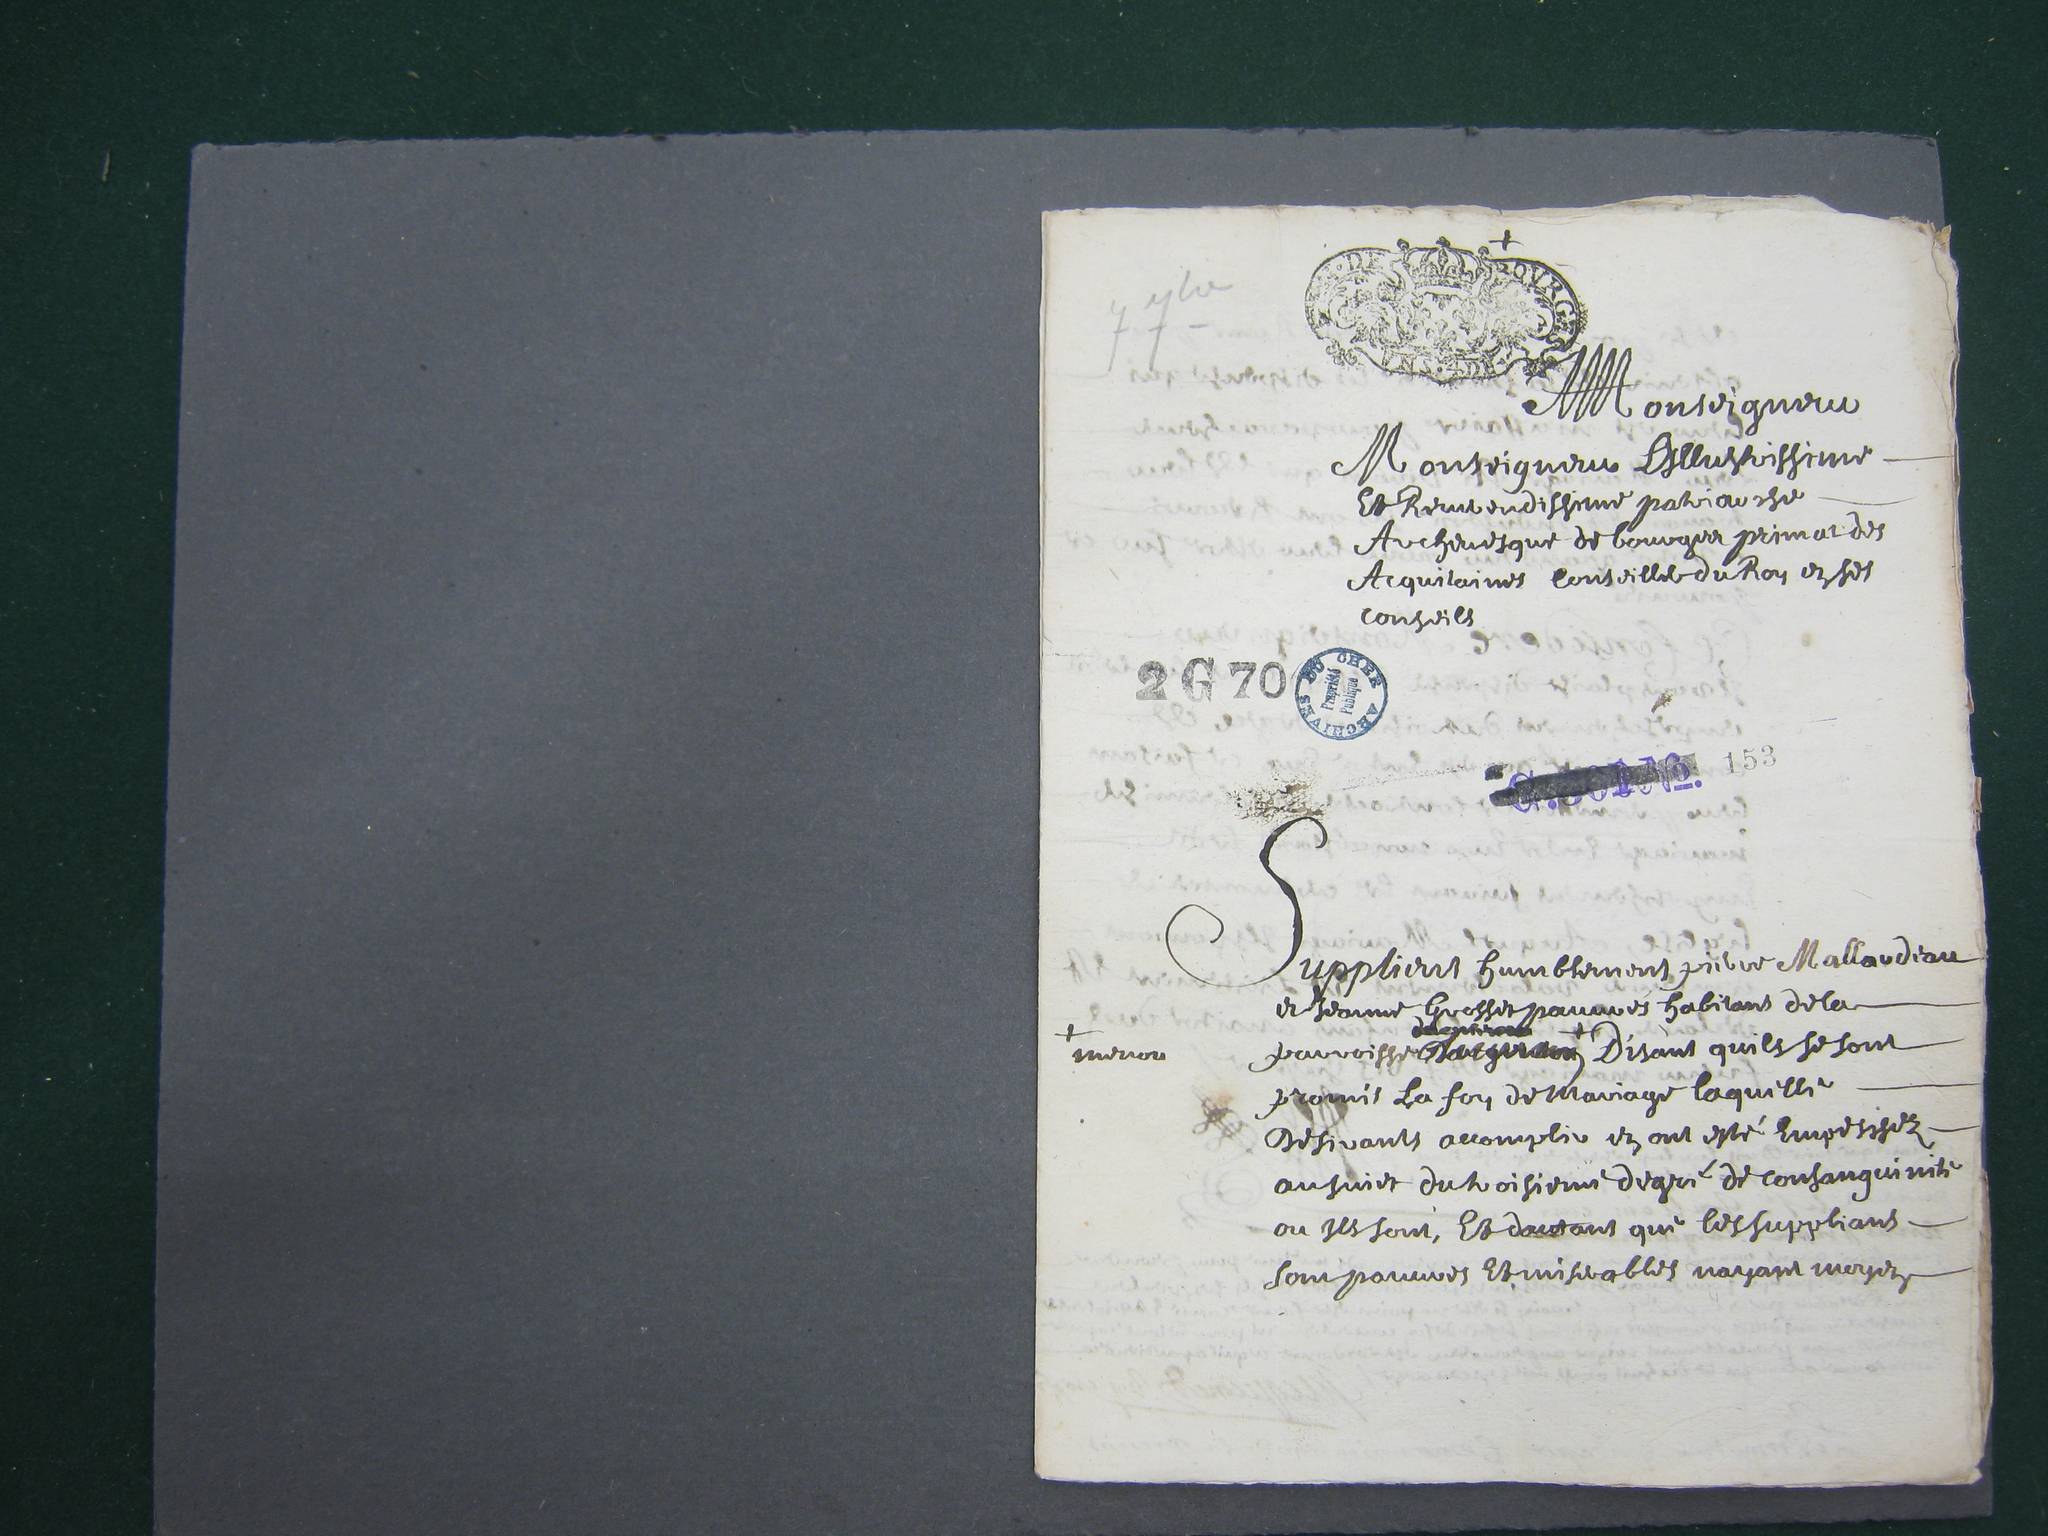 7 7bre
BOVRGES
Monseigneur
Monseigneur Lillustrissime
Et Reuerendissime patriarche
Archeuesque de bourges primat des
Acquitaines Conseiller du Roy en ses
conseils
2 G 70
ARCHIVES DU CHER
Propriété
Publique
153
Supplient humblement pierre Mallardeau
et Jeanne Grosset pauures habitans de la
parroisse + Disant quils se sont
+ menou
promis La foy de Mariage laquelle
Desirants accomplir en ont esté Empeschez
au suiet du troisieme degré de consanguinité
ou Ils sont, Et dautant que les supplians
sont pauures Et miserables nayant moyen